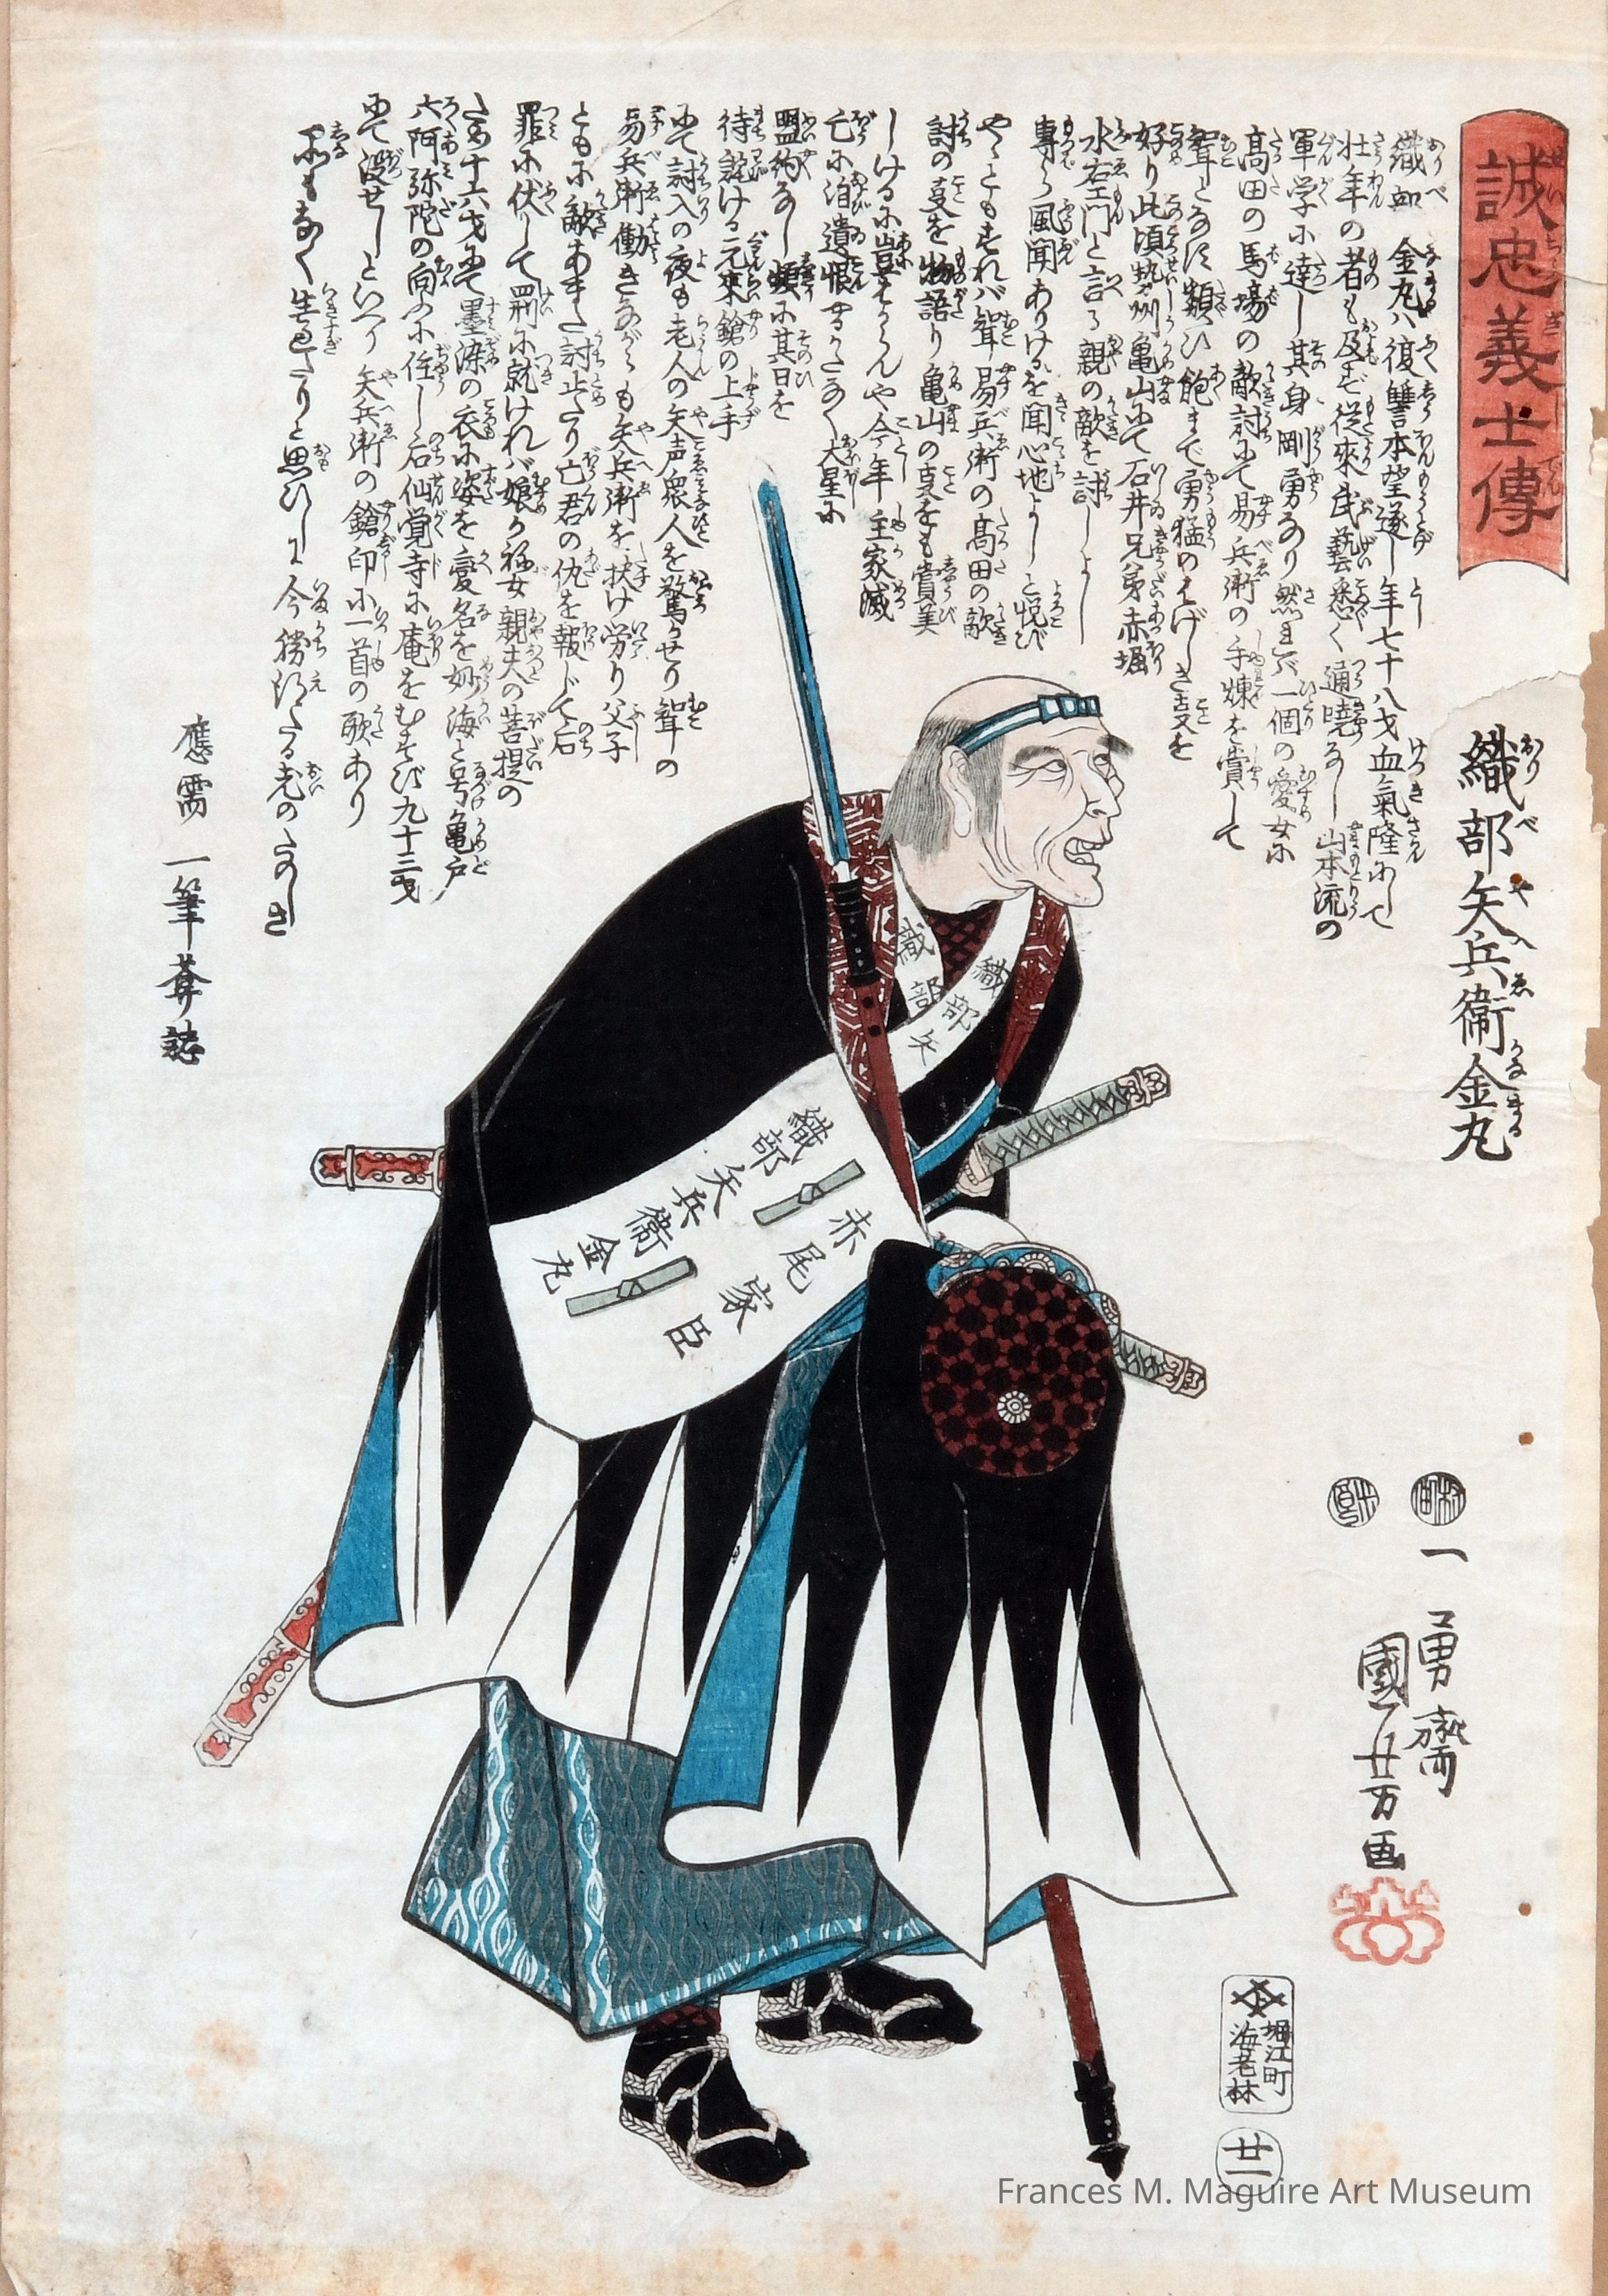 誠忠義士傳
織部矢兵衞金丸
織部金丸ハ復讐本望遂し年七十八才血氣隆にして
壮年の者も及ばず従來武藝悉く通曉なし山本流の
軍学に達し其身剛勇なり然れバ一個の愛女に
髙田の馬塲の敵討にて易兵衞の手煉を賞して
聟となに類ひ飽まで勇猛のはげしき支を
好り此頃勢州亀山にて石井兄弟赤堀
水右エ門と言る親の敵を討しよし
專ら風聞ありけるを聞心地よしと悦び
やゝともすれバ聟易兵衞の髙田の敵
討の支を物語り亀山の支をも賞美
しけるに豈はからんや今年主家滅
亡に泊遺恨やるかたなく大星に
盟約なし頻に其日を
待詫ける元來鎗の上手
にて討入の夜も老人の矢声衆人を驚かせり聟の
易兵衞働きながらも矢兵衞を扶け労り父子
ともに敵あまた討止たり亡君の仇を報じて后
罪に伏して罰に就けれバ娘か祢女親夫の菩提の
ため十六才にて墨染の衣に姿を変名を妙海と号亀戸
六阿弥陀の向ふに住し后仙覚寺に庵をむすび九十三才
にて没せしといへり矢兵衞の鎗印に一首の歌あり
不もなく生過たりと思ひしに今勝得たる老のたのしき
應需 一筆葊誌
織部
織部矢
赤尾家臣
織部矢兵衞金丸
一勇齋
國芳画
村田
米良
堀江町
海老林
廿一
Frances M. Maguire Art Museum